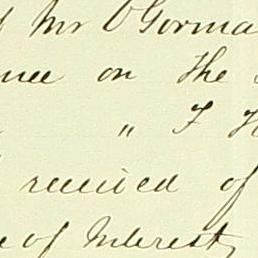 of Mr O'Gorma
nce on the
" F H
received of
e of Interest,